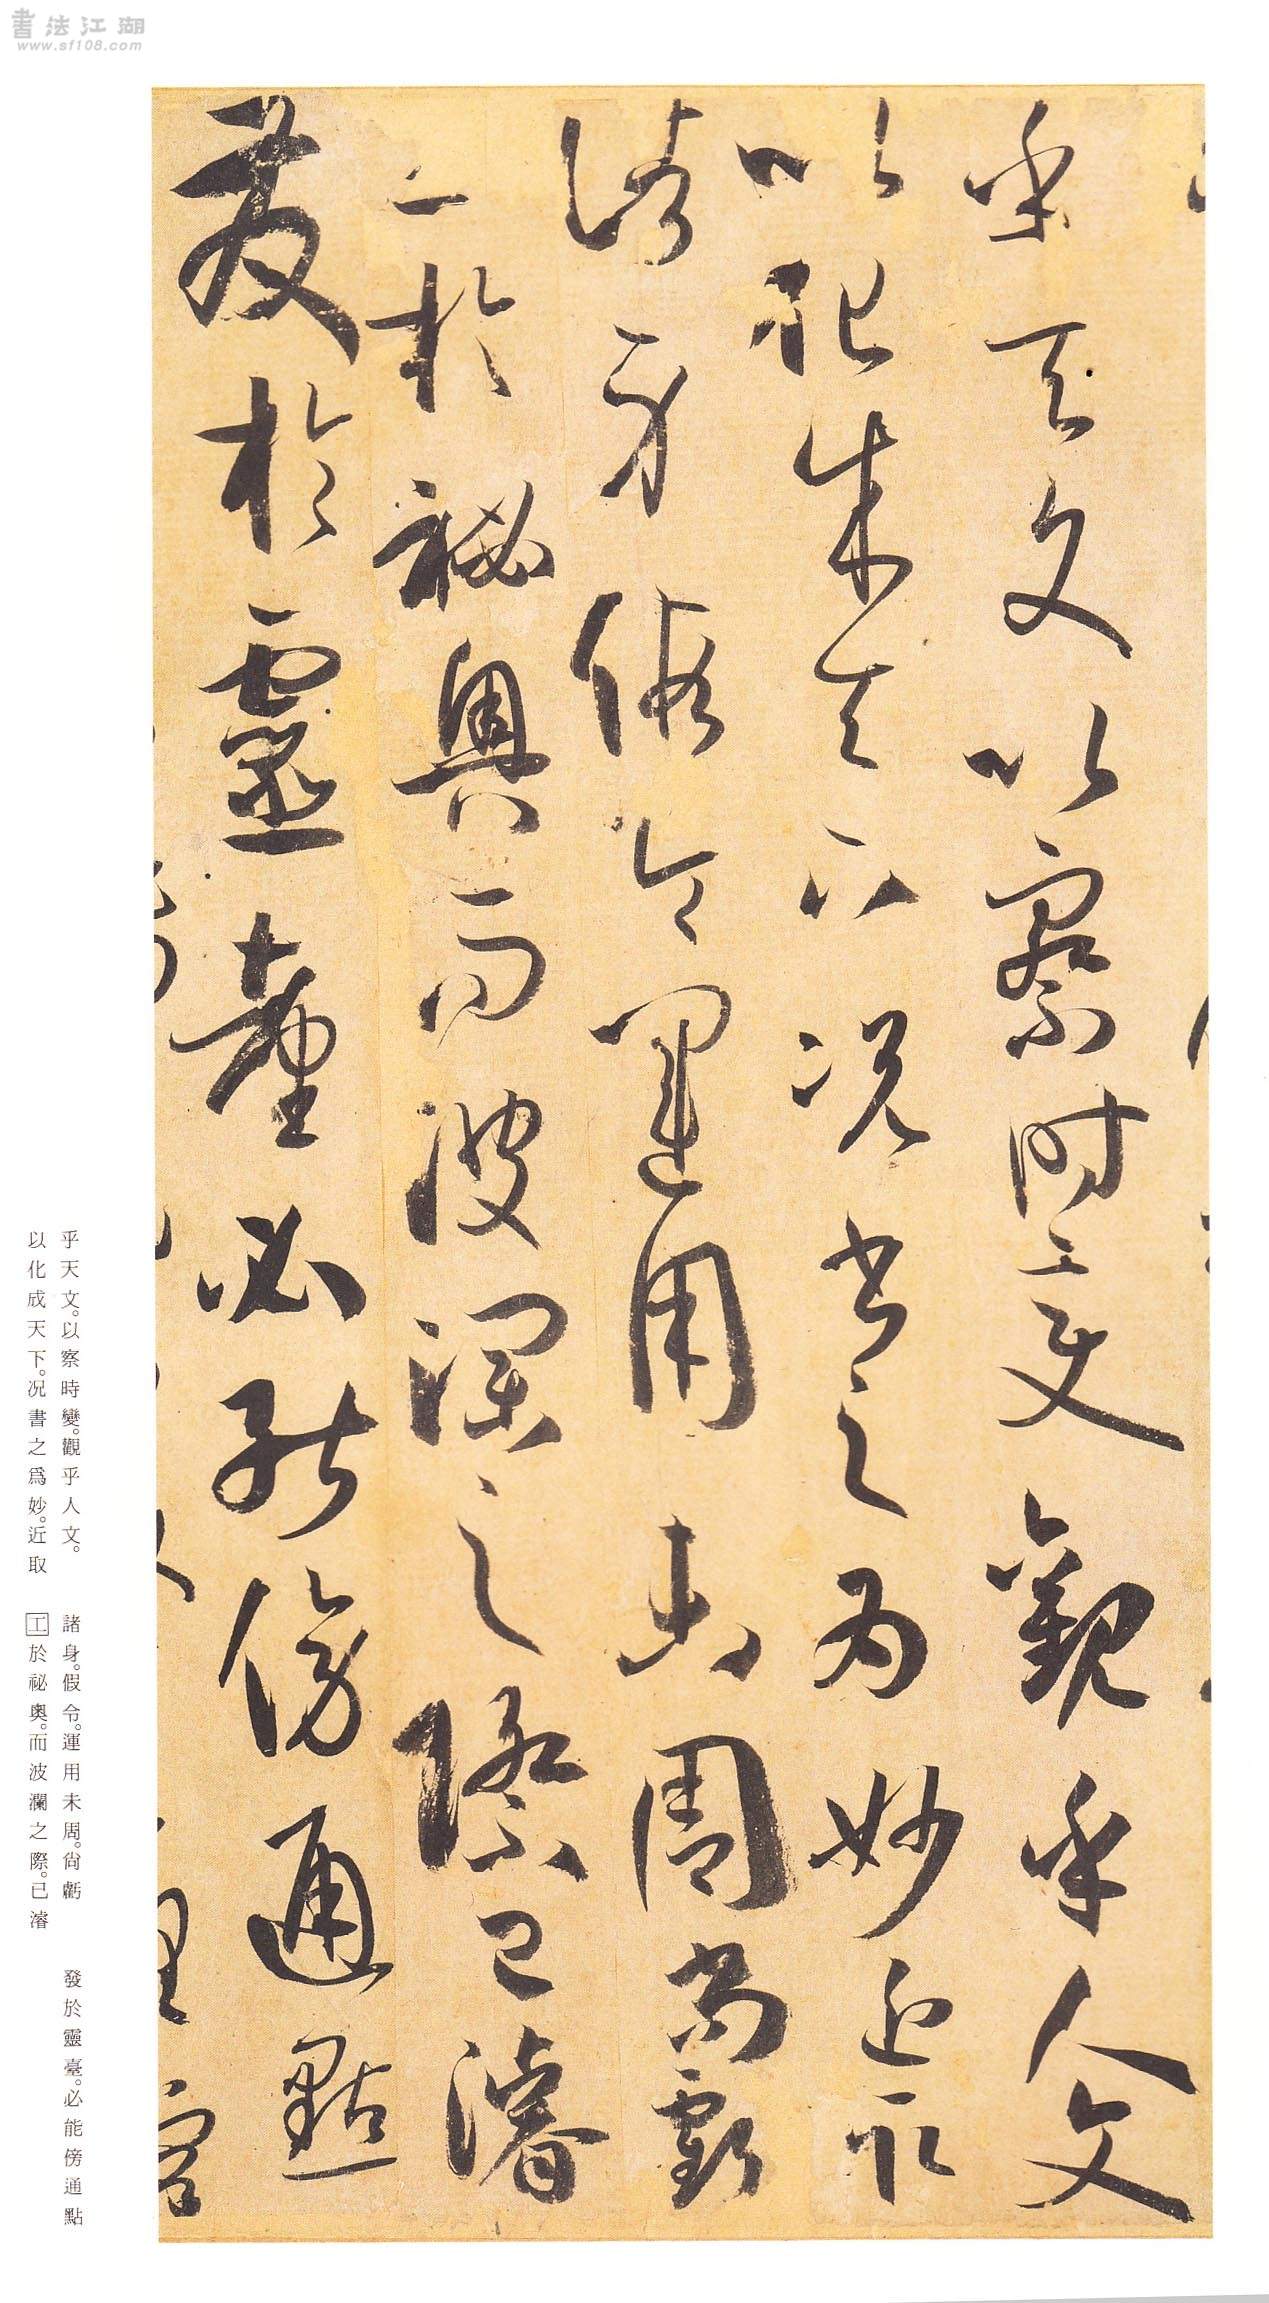 書法江湖
www.sf108.com
乎天文以察時變觀乎人文
以化成天下况書之為妙近取
諸身假令運用未周尚虧
工於祕奧而波瀾之際已濬
發於靈臺必能傍通點
乎天文。以察時變。觀乎人文。
以化成天下。况書之爲妙。近取
諸身。假令。運用未周。尙虧
工於祕奧。而波瀾之際。已濬
發於靈臺。必能傍通點